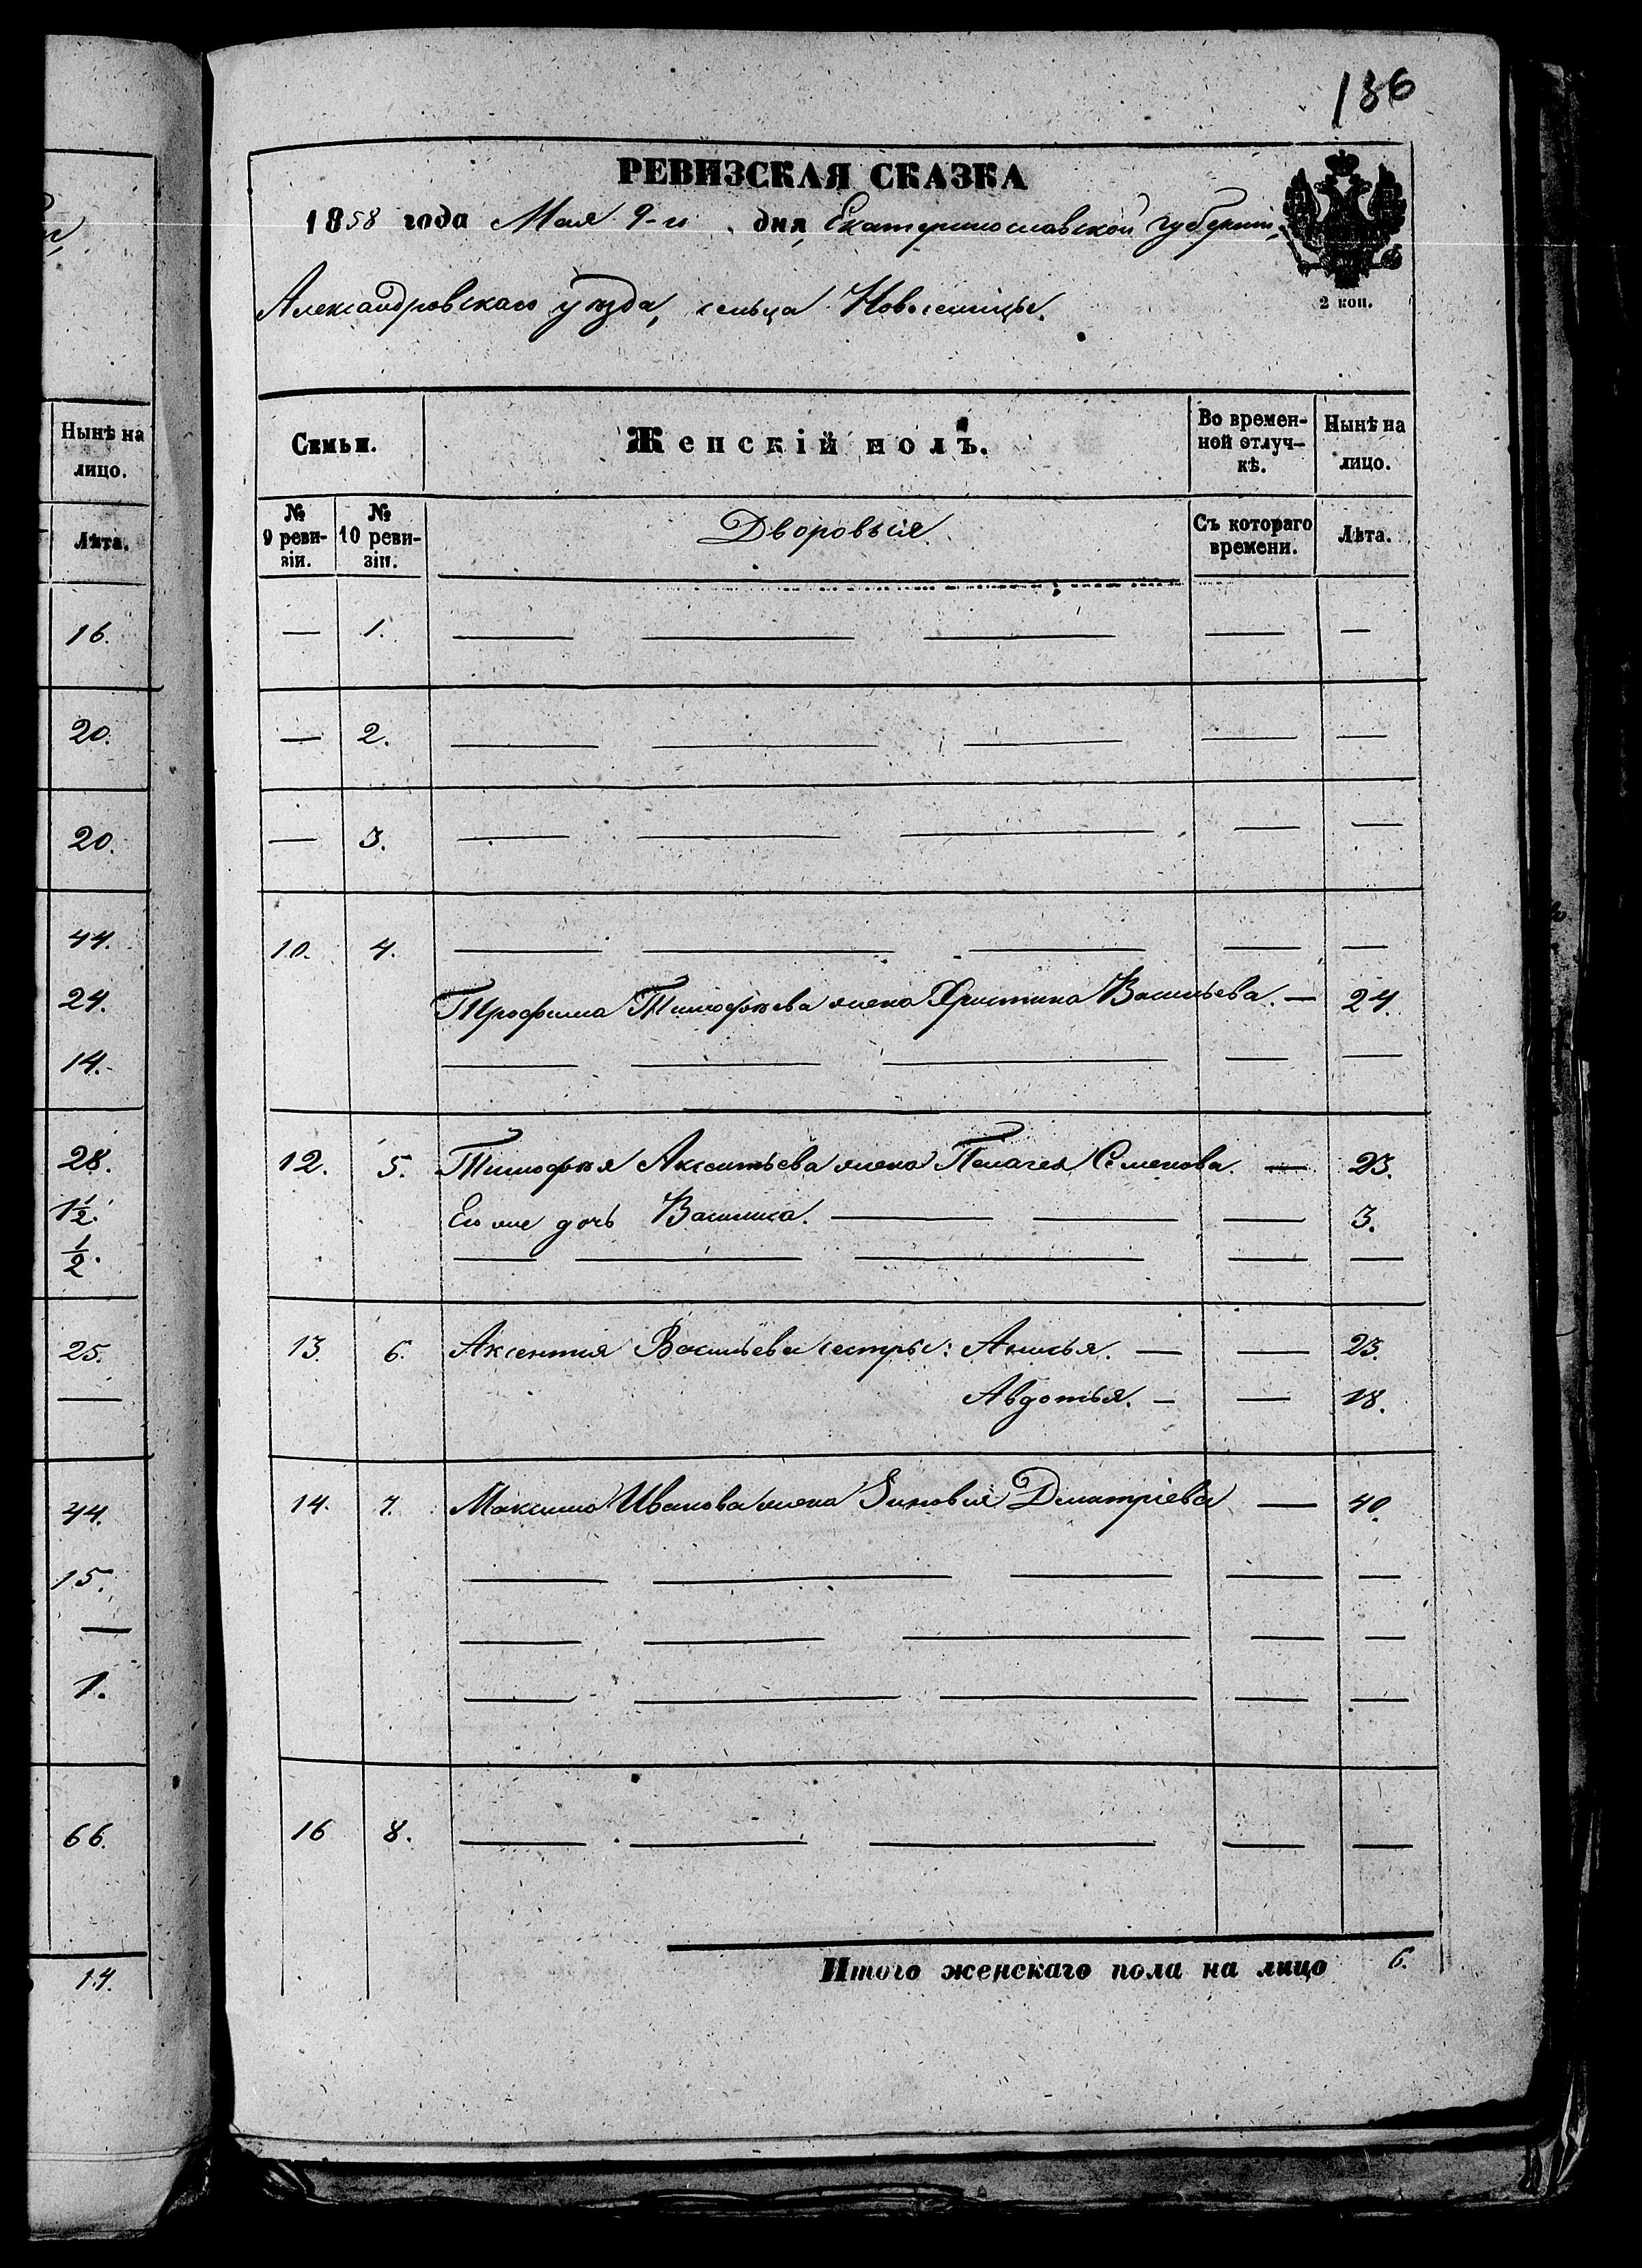 136
РЕВИЗСКАЯ СКАЗКА
1858 года Мая 9-го дня, Екатеринославской губерніи,
2 коп.
Александровскаго уѣзда, сельца Новоселицы.
Нынѣ на лицо.
Лѣта.
16.
20.
20.
44.
24.
14.
28.
1½.
½.
25.
44.
15.
1.
66.
14.
Семьи. Женскій полъ. Во времен-ной отлуч-кѣ. Нынѣ на лицо.
№ 9 реви-зіи. № 10 реви-зіи. Дворовыя Съ котораго времени. Лѣта.
— 1. — — — — —
— 2. — — — — —
— 3. — — — — —
10. 4. — — — — —
Трофима Тимофѣева жена Христина Васильева. — 24.
— — — — —
12. 5. Тимофѣя Аксентьева жена Пелагея Семенова. — 23.
Его же дочь Василиса. — — — 3.
— — — — —
13. 6. Аксентія Васильева сестры: Анисья. — — 23.
Авдотья. — — 18.
14. 7. Максима Иванова жена Зиновія Дмитріева — 40.
— — — — —
— — — — —
— — — — —
16 8. — — — — —
Итого женскаго пола на лицо 6.